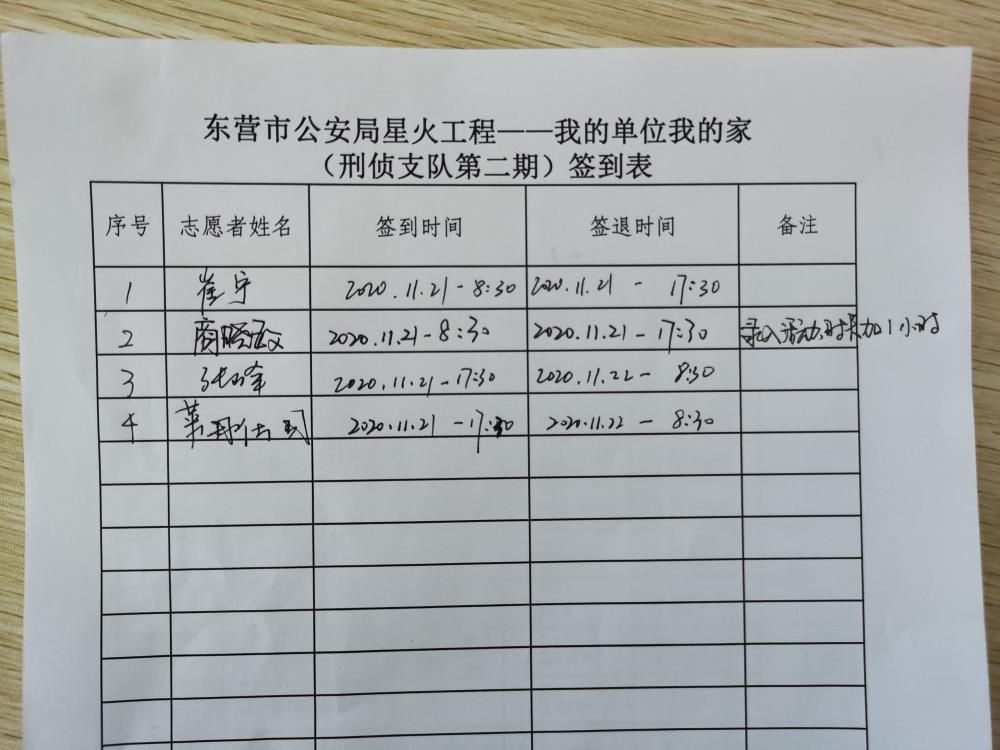 东营市公安局星火工程——我的单位我的家
（刑侦支队第二期）签到表
序号 志愿者姓名 签到时间 签退时间 备注
1 崔宁 2020.11.21-8:30 2020.11.21-17:30
2 商 2020.11.21-8:30 2020.11.21-17:30 录入活动时长加1小时
3 2020.11.21-17:30 2020.11.22-8:30
4 2020.11.21-17:30 2020.11.22-8:30